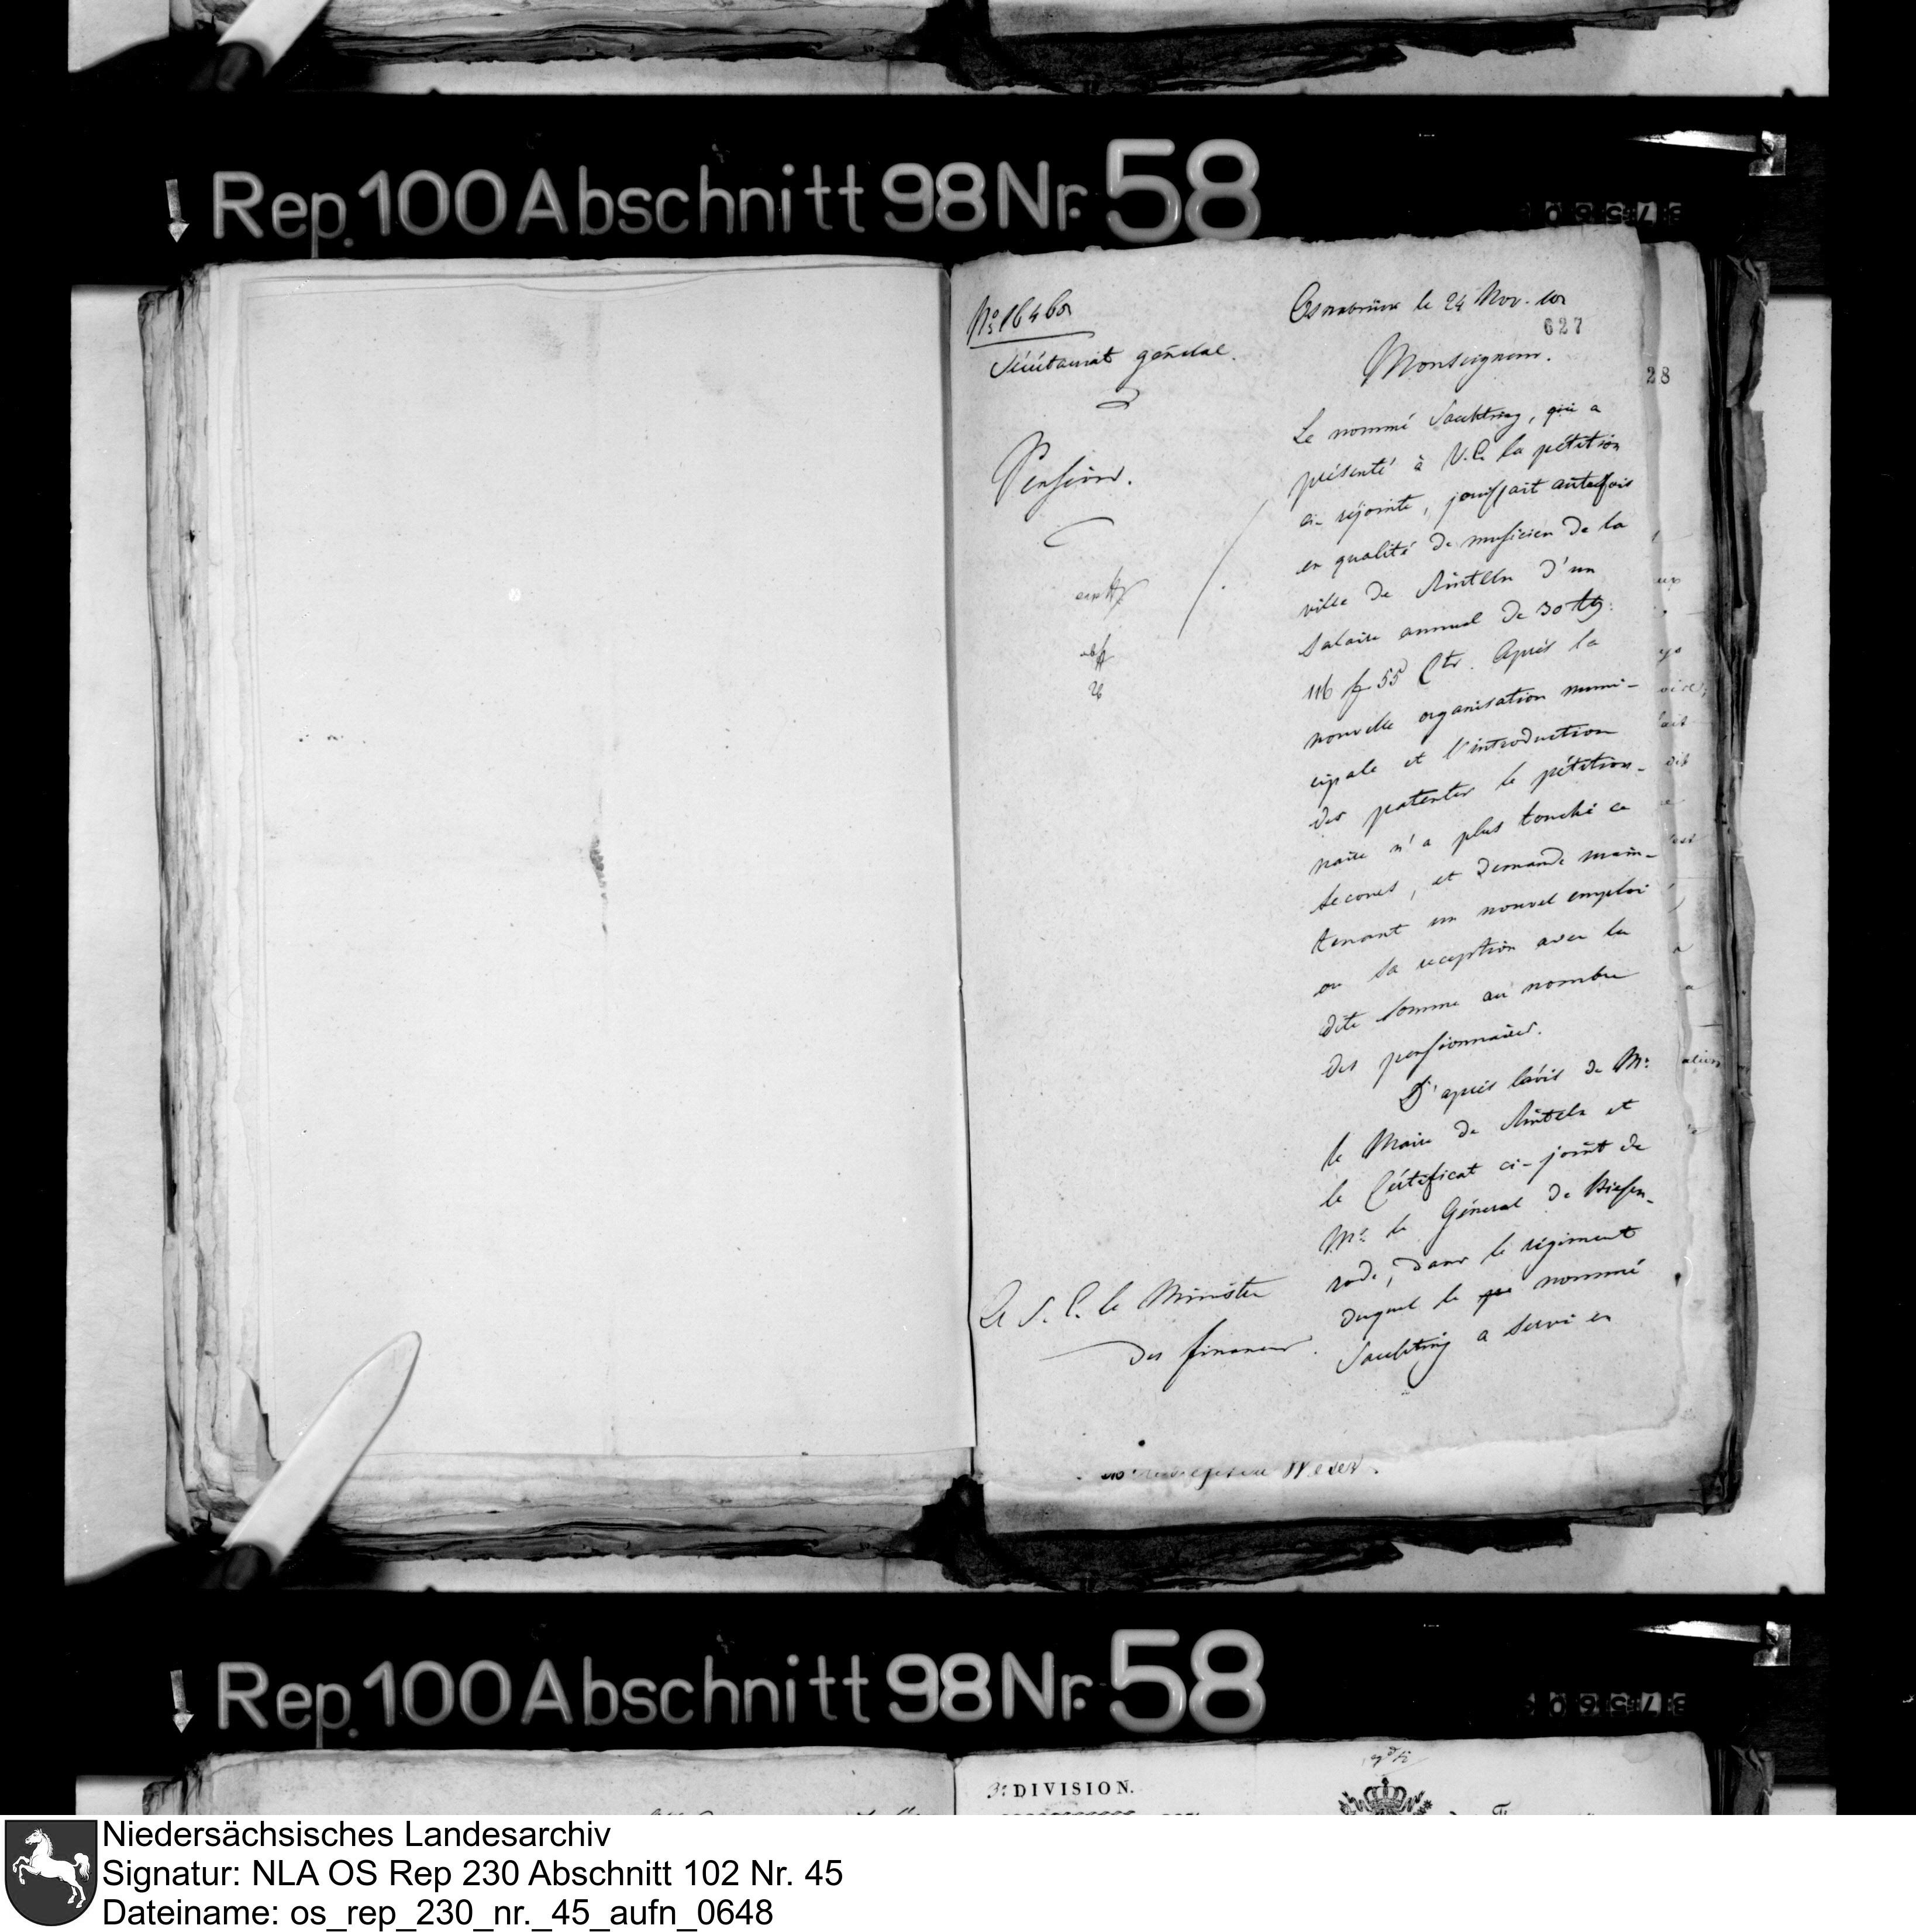 Rep. 100 Abschnitt 98 Nr. 58
Osnabrück le 24 Nov. 
627
Sécrétariat général.
Monseigneur.
28
Pension.
Le nommé Saubting, qui a
présenté à V. E. la pétition
ci-rejointe, jouissait autrefois
en qualité de musicien de la
ville de Rinteln d'un
salaire annuel de 30 
116 fr 55 Cts. Après la
nouvelle organisation muni-
cipale et l'introduction
des patentes le pétition-
naire n'a plus touché ce
secours, et demande main-
tenant un nouvel emploi
ou sa reception avec la
dite somme au nombre
des pensionnaires.
D'après l'avis de Mr.
le Maire de Rinteln et
le Certificat ci-joint de
Mr. le Général de Biesen-
rode, dans le régiment
duquel le nommé
Saubting a servi en
S. E. le Ministre
des finances.
Weser.
Rep. 100 Abschnitt 98 Nr. 58
3e DIVISION.
Niedersächsisches Landesarchiv
Signatur: NLA OS Rep 230 Abschnitt 102 Nr. 45
Dateiname: os_rep_230_nr._45_aufn_0648